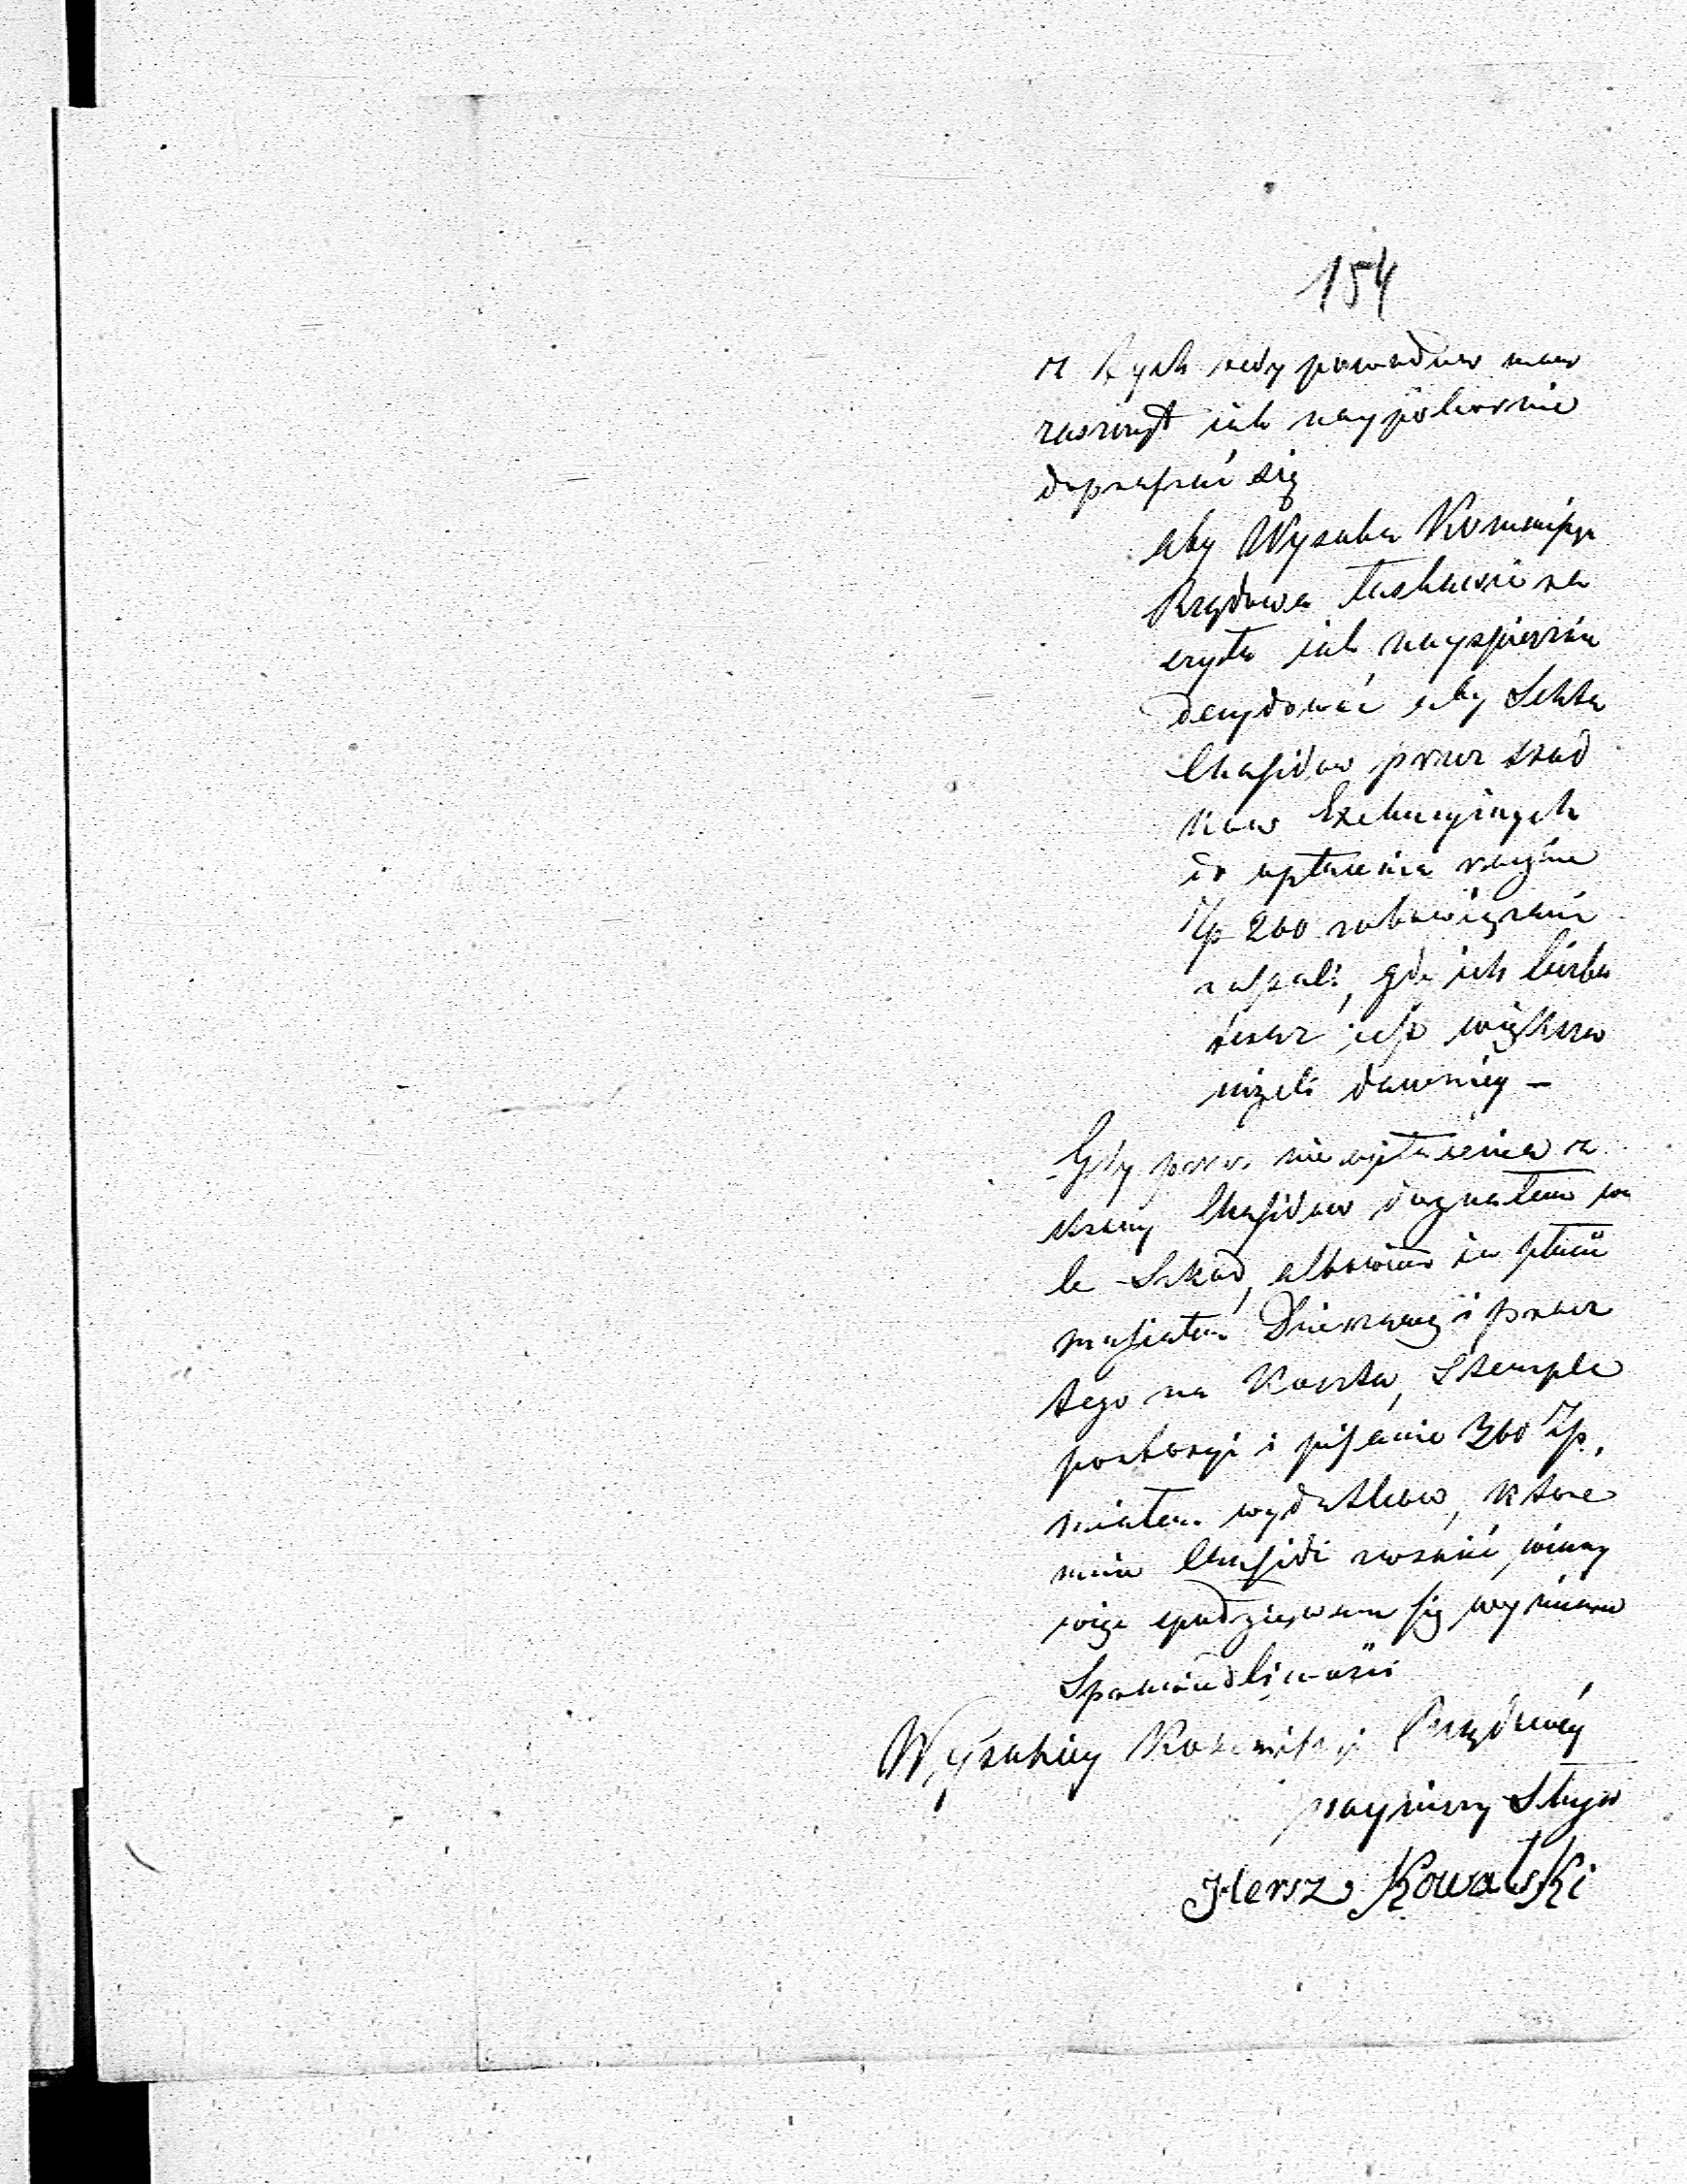 154
z tych tedy powodów mam
zaszczyt jak naypokornie
dopraszać się
aby Wysoka Kommissya
Rządowa łaskawie ra
czyła iak nayspieszni
decydować aby Sekta
Chasidów przez środ
ków Exekucyinych
do opłacenia rocznie
Złp 200 zobowiązani
zostali, gdy ich liczba
teraz jest większa
niżeli dawniey —
Gdy przez nieopłacenie z
strony Chasidów doznałem wie
le Szkod, albowiem ia płacić
musiałem Dzierzawę i przez
tego na Koszta, Stemple
portoryi i pisanie 360 Złp.
miałem wydatków, które
mnie Chasidi zwrócić winny
więc spodziewam się wymiaru
Sprawiedliwości
Wysokiey Kommissyi Rządowéy
nayniższy Sługa
Hersz Kowalski